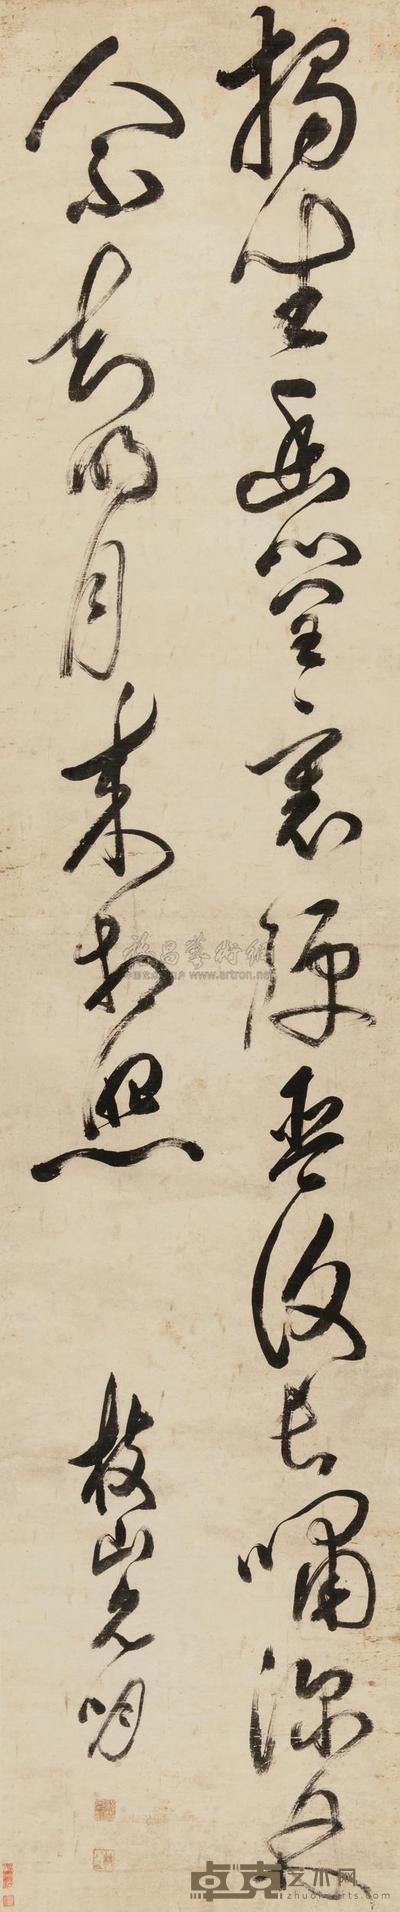 獨坐幽篁裏彈琴復長嘯深林
人不知明月来相照
枝山允明
雅昌藝術網
www.artron.net
卓克艺术网
zhuokearts.com